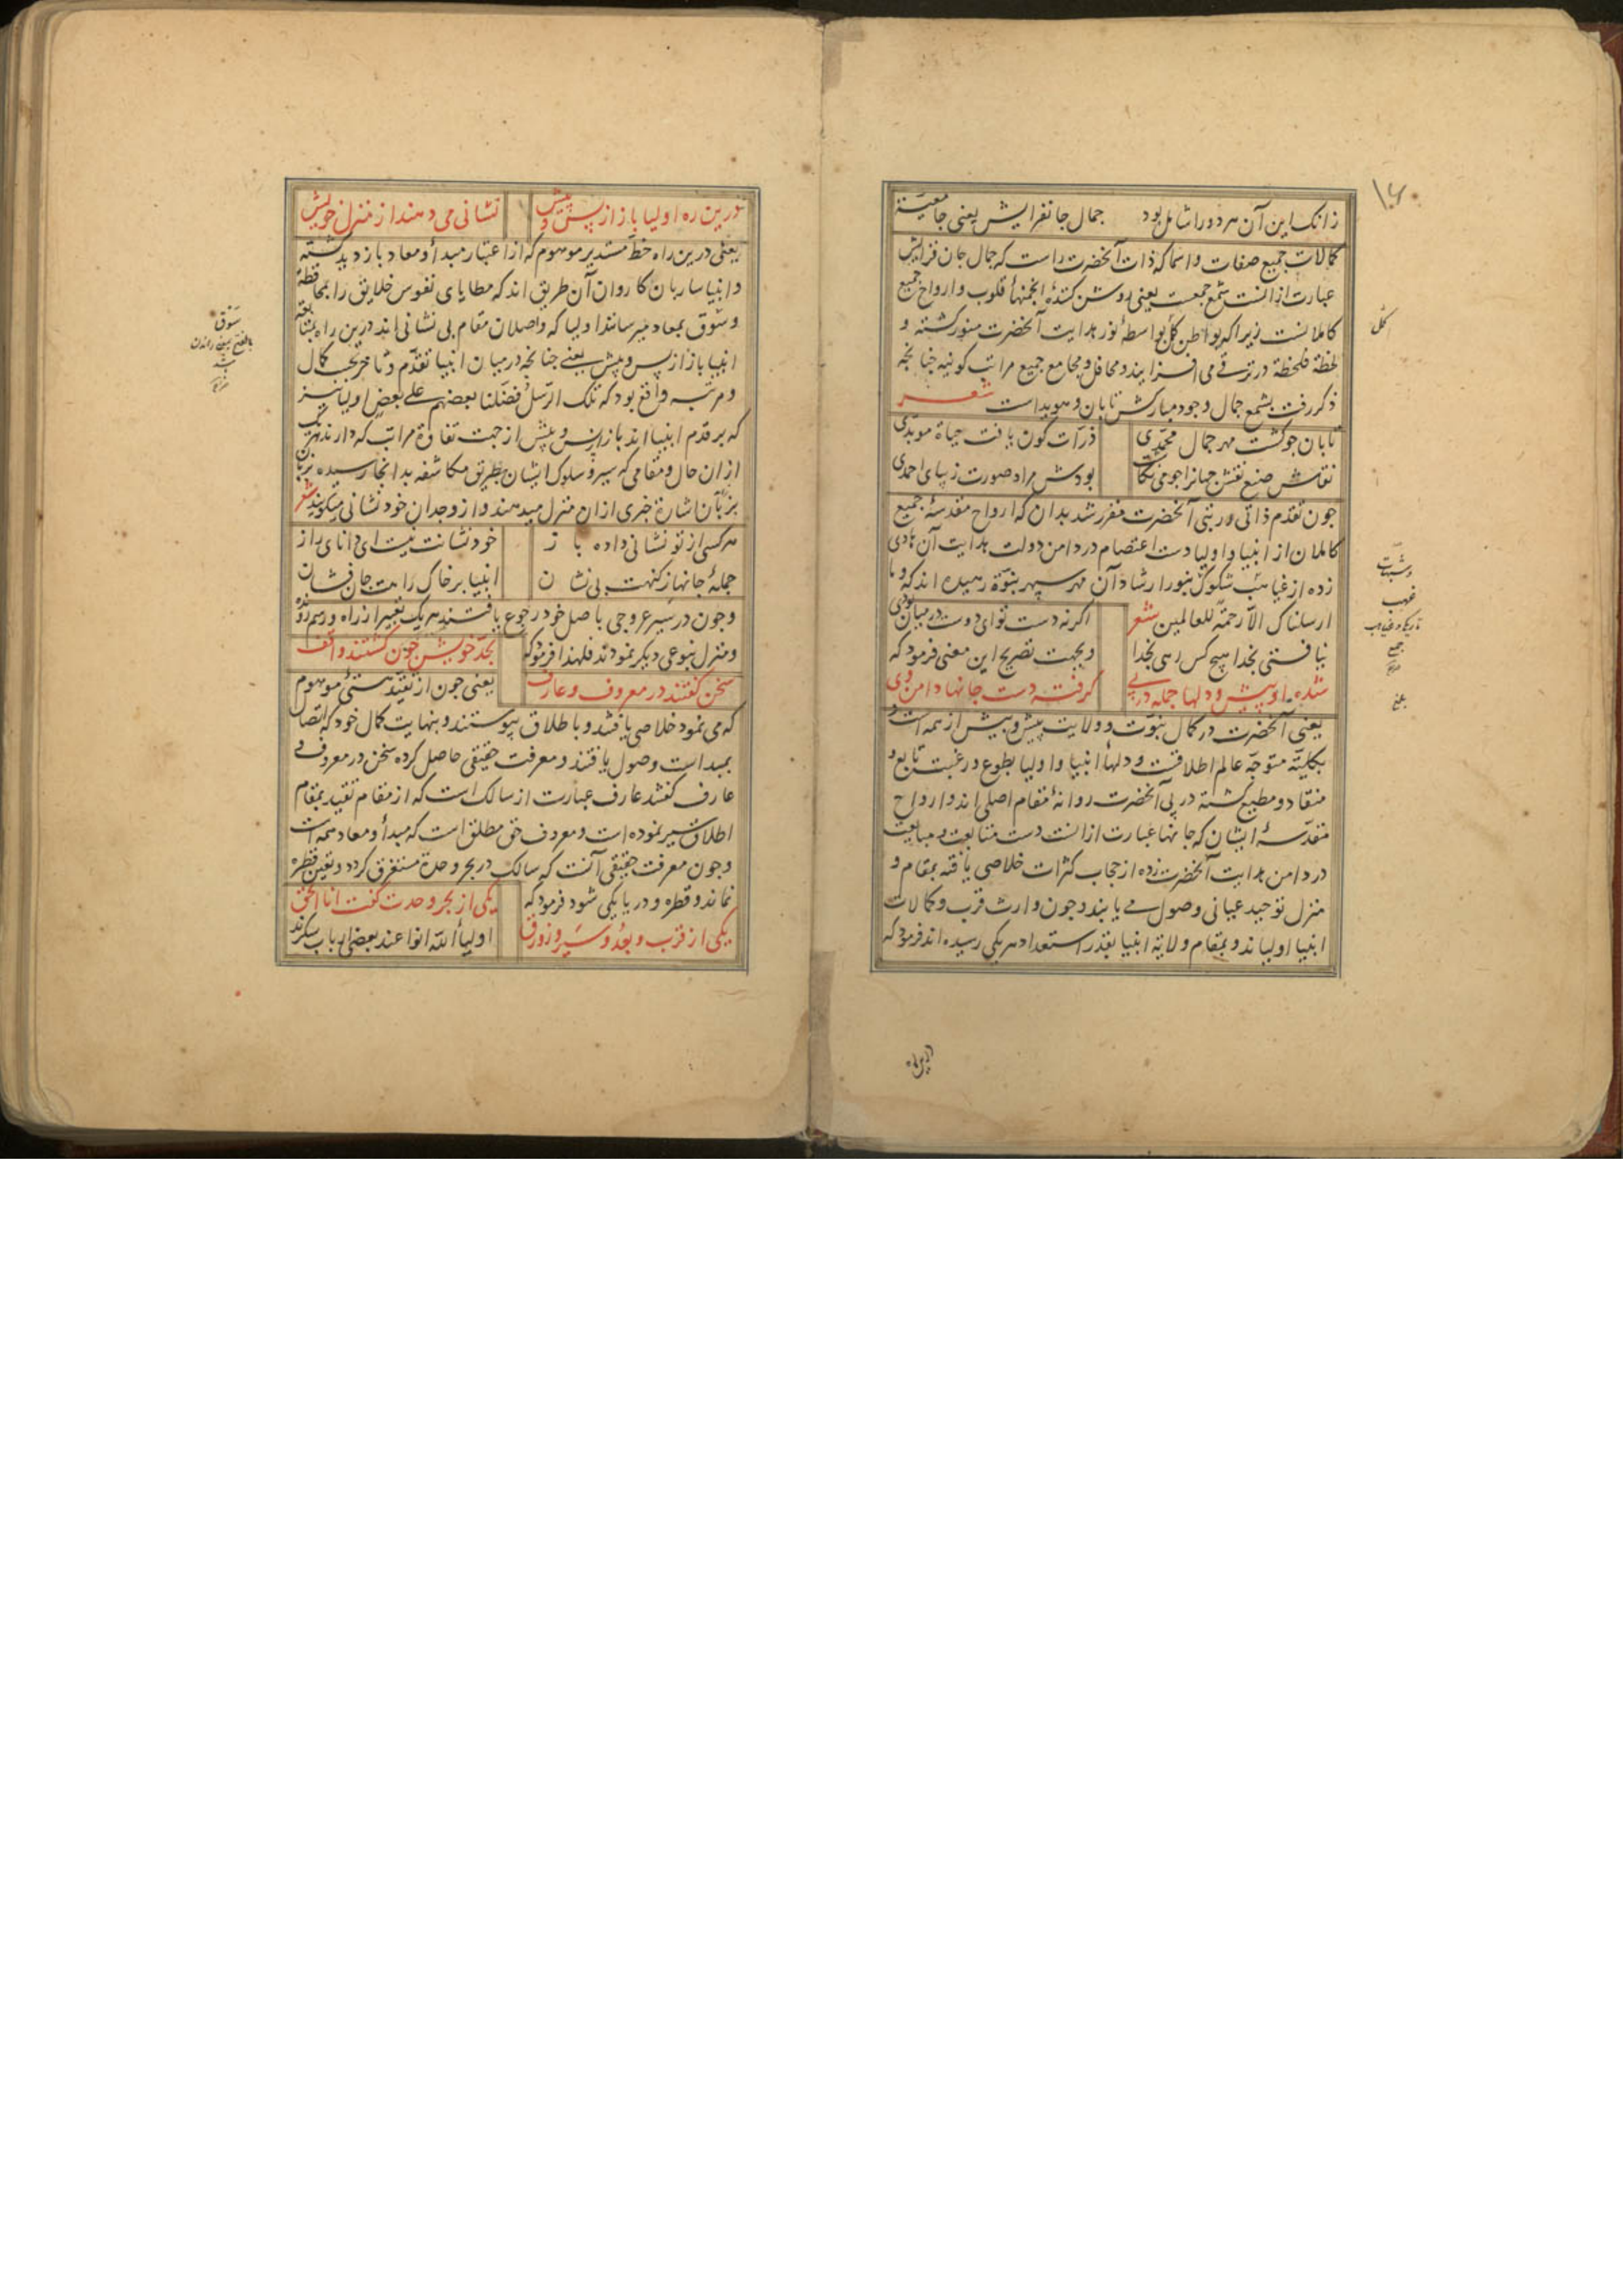 زانک این آن هر دو را شامل بود جمال جانفزایش یعنی جامعیت
کمالات جمیع صفات و اسما که ذات آنحضرت راست که جمال جان فزایش
عبارت از آنست شمع جمعست یعنی روشن کنندهٔ انجمنهاء قلوب و ارواح جمیع
کاملانست زیرا که بواطن کل بواسطهٔ نور هدایت آنحضرت منور گشته و
لحظة فلحظة در ترقی می افزایند و محافل و مجامع جمیع مراتب کونیه چنانچه
ذکر رفت بشمع جمال وجود مبارکش تابان و هویداست شعر
تابان چو گشت مهر جمال محمدی
ذرات کون یافت حیاة موبدی
نقاش صنع نقش جهانرا چو می نگاشت
بودش مراد صورت زیبای احمدی
چون تقدم ذاتی و رتبی آنحضرت مقرر شد بدان که ارواح مقدسهٔ جمیع
کاملان از انبیا و اولیا دست اعتصام در دامن دولت هدایت آن هادی
زده از غیاهب شکوک بنور ارشاد آن مهر سپهر نبوة رهیده اند که و ما
ارسلناک الا رحمة للعالمین شعر
اگر نه دست تو ای دوست در میان بودی
نیافتی بخدا هیچ کس رهی بخدا
و بجهت تصریح این معنی فرمود که
شده او پیش و دلها جمله در پی
گرفته دست جانها دامن وی
یعنی آنحضرت در کمال نبوت و ولایت پیش و بیش از همه است و
بکلیته متوجه عالم اطلاقست و دلهاء انبیا و اولیا بطوع و رغبت تابع و
منقاد و مطیع گشته در پی آنحضرت روانهٔ مقام اصلی اند و ارواح
مقدسهٔ ایشان که جانها عبارت از آنست دست متابعت و مبایعت
در دامن هدایت آنحضرت زده از حجاب کثرات خلاصی یافته بمقام و
منزل توحید عیانی وصول می یابند و چون وارث قرب و کمالات
انبیا اولیااند و بمقام ولایة انبیا بقدر استعداد هر یکی رسیده اند فرمود که
درین ره
درین ره اولیا باز از پس و پیش
نشانی می دهند از منزل خویش
یعنی درین راه خط مستدیر موهوم که از اعتبار مبدأ و معاد باز دید گشته
و انبیا ساربان کاروان آن طریق اند که مطایای نفوس خلایق را بمحافظه
و سوق بمعاد میرسانند اولیا که واصلان مقام بی نشانی اند درین راه بمتابعة
انبیا باز از پس و پیش یعنی چنانچه در میان انبیا تقدم و تاخر بحسب کمال
و مرتبه واقع بود که تلک الرسل فضلنا بعضهم علی بعض اولیا نیز
که بر قدم انبیااند باز از پس و پیش از جهت تفاوة مراتب که دارند هر یک
از ان حال و مقامی که سیر و سلوک ایشان بطریق مکاشفه بدانجا رسیده بزبان
بزبان اشارة خبری از ان منزل میدهند و از وجدان خود نشانی میگویند شعر
هر کسی از تو نشانی داده باز
خود نشانت نیست ای دانای راز
جملهٔ جانها ز کنهت بی نشان
انبیا بر خاک راهت جان فشان
و چون در سیر عروجی باصل خود رجوع یافتند هر یک تعبیر از راه و رسم
و منزل بنوعی دیگر نمودند فلهذا فرمود که
بحد خویش چون گشتند واقف
سخن گفتند در معروف و عارف
یعنی چون از تقید هستی موهوم
که می نمود خلاصی یافتند و باطلاق پیوستند و بنهایت کمال خود که اتصال
بمبداست وصول یافتند و معرفت حقیقی حاصل کرده سخن در معروف و
عارف گفتند عارف عبارت از سالک است که از مقام تقید بمقام
اطلاق سیر نموده است و معروف حق مطلق است که مبدأ و معاد همه است
و چون معرفت حقیقی آنست که سالک در بحر وحدة مستغرق گردد و تعین قطره
نماند و قطره و دریا یکی شود فرمود که
یکی از بحر وحدت گفت انا الحق
یکی از قرب و بعد و سیر و زورق
اولیاء الله انوا عند بعضی ارباب سکرند
سوق
بالفتح راندن